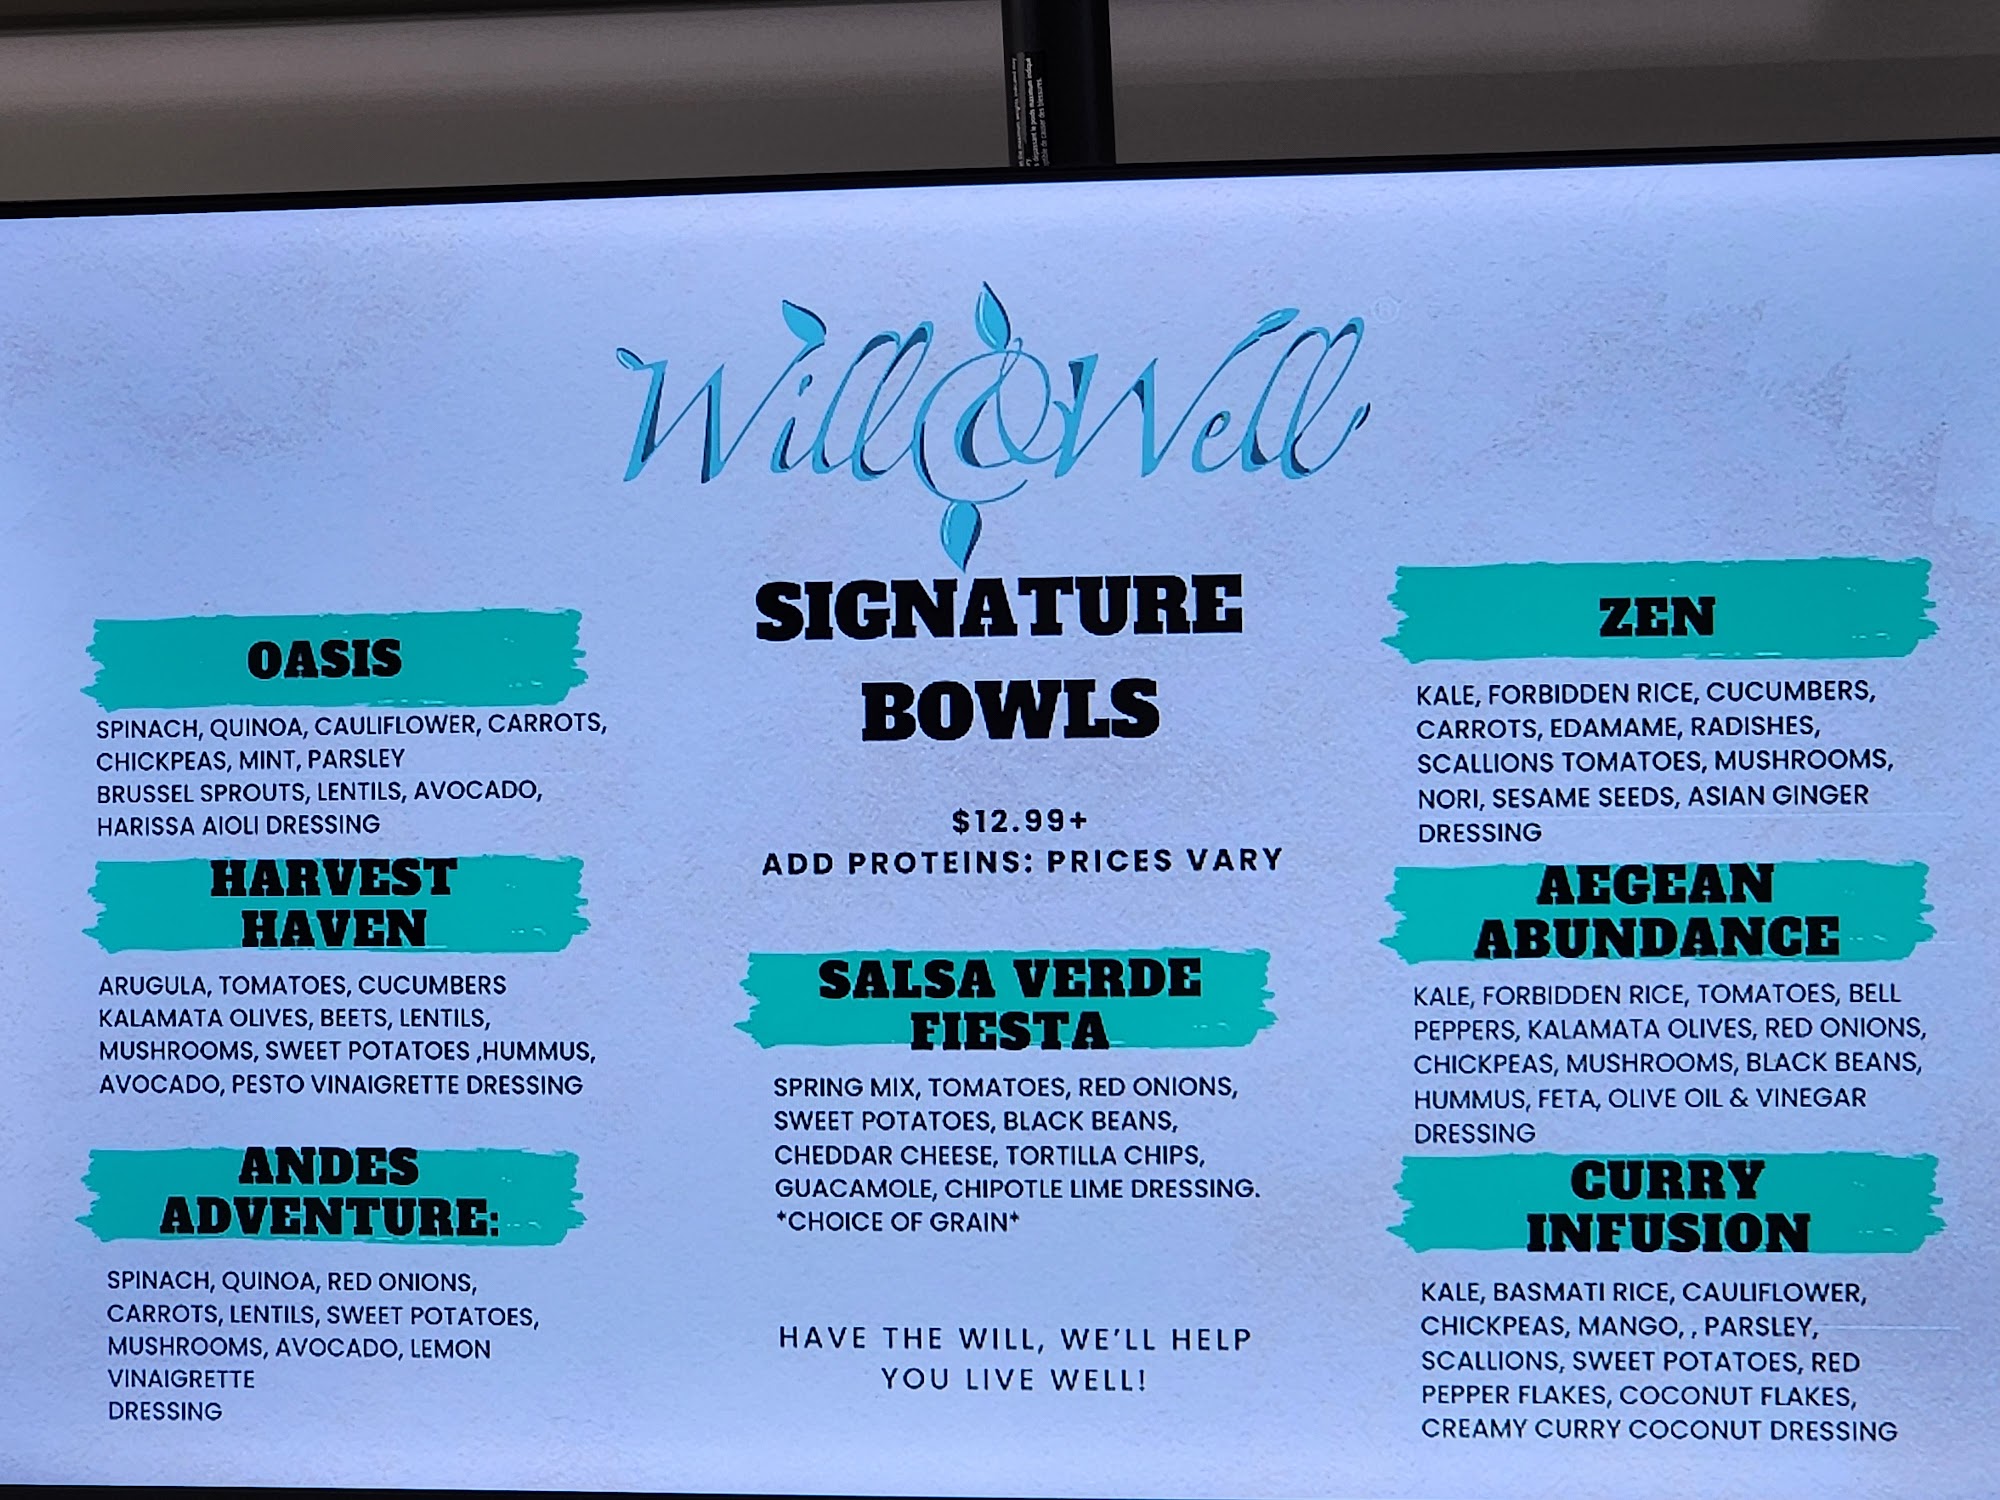 Will & Well
®
SIGNATURE
BOWLS
$12.99+
ADD PROTEINS: PRICES VARY
OASIS
SPINACH, QUINOA, CAULIFLOWER, CARROTS,
CHICKPEAS, MINT, PARSLEY
BRUSSEL SPROUTS, LENTILS, AVOCADO,
HARISSA AIOLI DRESSING
HARVEST
HAVEN
ARUGULA, TOMATOES, CUCUMBERS
KALAMATA OLIVES, BEETS, LENTILS,
MUSHROOMS, SWEET POTATOES ,HUMMUS,
AVOCADO, PESTO VINAIGRETTE DRESSING
ANDES
ADVENTURE:
SPINACH, QUINOA, RED ONIONS,
CARROTS, LENTILS, SWEET POTATOES,
MUSHROOMS, AVOCADO, LEMON
VINAIGRETTE
DRESSING
SALSA VERDE
FIESTA
SPRING MIX, TOMATOES, RED ONIONS,
SWEET POTATOES, BLACK BEANS,
CHEDDAR CHEESE, TORTILLA CHIPS,
GUACAMOLE, CHIPOTLE LIME DRESSING.
*CHOICE OF GRAIN*
HAVE THE WILL, WE'LL HELP
YOU LIVE WELL!
ZEN
KALE, FORBIDDEN RICE, CUCUMBERS,
CARROTS, EDAMAME, RADISHES,
SCALLIONS TOMATOES, MUSHROOMS,
NORI, SESAME SEEDS, ASIAN GINGER
DRESSING
AEGEAN
ABUNDANCE
KALE, FORBIDDEN RICE, TOMATOES, BELL
PEPPERS, KALAMATA OLIVES, RED ONIONS,
CHICKPEAS, MUSHROOMS, BLACK BEANS,
HUMMUS, FETA, OLIVE OIL & VINEGAR
DRESSING
CURRY
INFUSION
KALE, BASMATI RICE, CAULIFLOWER,
CHICKPEAS, MANGO, , PARSLEY,
SCALLIONS, SWEET POTATOES, RED
PEPPER FLAKES, COCONUT FLAKES,
CREAMY CURRY COCONUT DRESSING